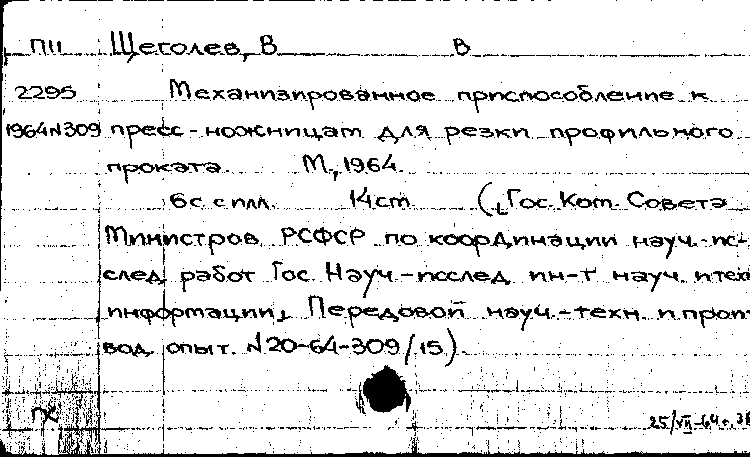 П11 Щеголев, В В
2295 Механизированное приспособление к
1964N309 пресс-ножницам для резки профильного
проката М., 1964.
6с. с илл. 14cm (Гос. Ком. Совета
Министров РСФСР по координации науч.-ис-
след. работ Гос. Науч.-исслед. ин-т науч. и тех
информации. Передовой науч.-техн. и произ-
вод. опыт. N20-64-309/15).
ПК
25/VII-64г.